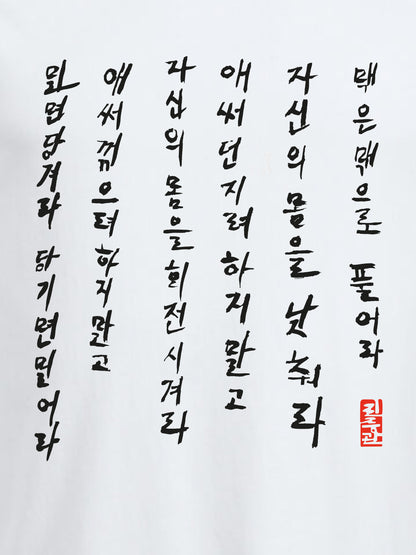 밀면당겨라 당기면밀어라
애써꺾으려하지말고
자신의몸을회전시켜라
애써던지려하지말고
자신의몸을낮춰라
맦은맦으로 풀어라